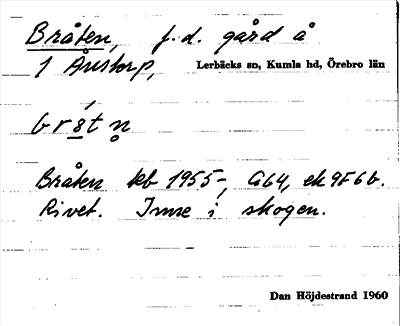 Bråten, f.d. gård å
1 Åstorp,
Lerbäcks sn, Kumla hd, Örebro län
Bråten kb 1955-, G64, ek 9F6b.
Rivet. Inne i skogen.
Dan Höjdestrand 1960